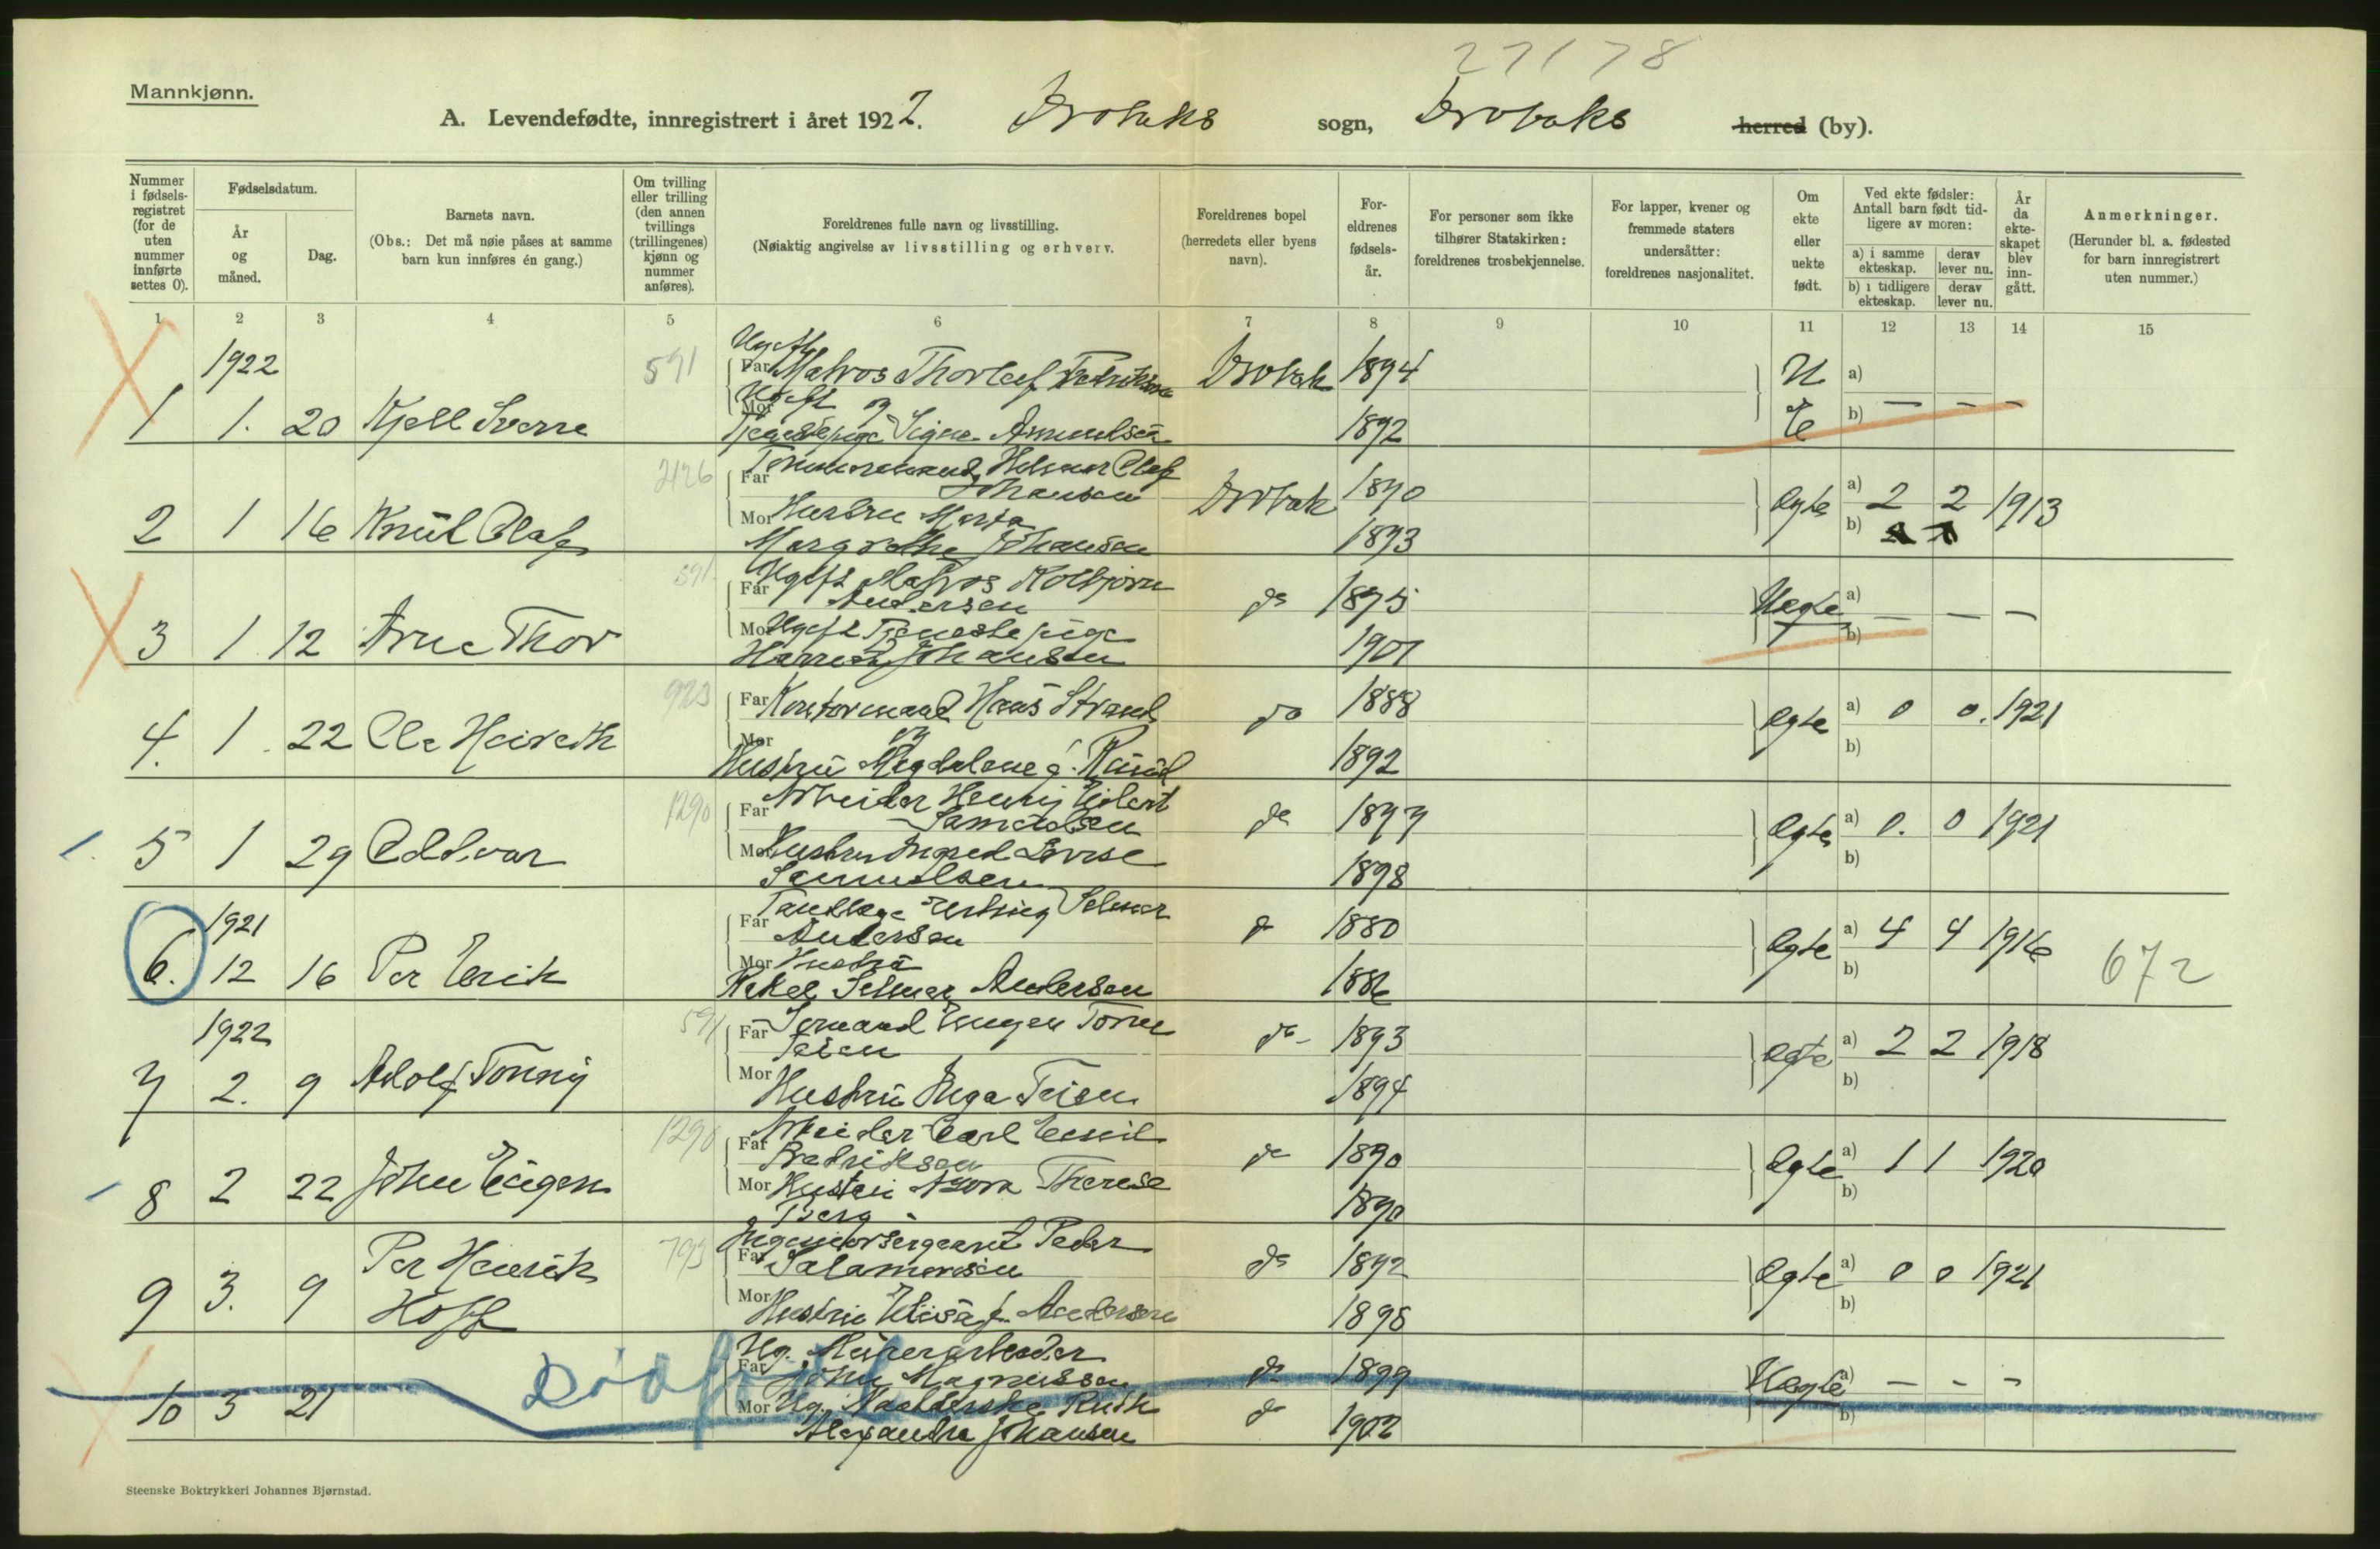 27178
Mannkjønn.
A. Levendefødte, innregistrert i året 1922. Drøbaks sogn, Drøbaks herred (by).
Nummer i fødsels-registret (for de uten nummer innførte settes 0).
Fødselsdatum.
År og måned.
Dag.
Barnets navn.
(Obs.: Det må nøie påses at samme barn kun innføres én gang.)
Om tvilling eller trilling (den annen tvillings (trillingenes) kjønn og nummer anføres).
Foreldrenes fulle navn og livsstilling.
(Nøiaktig angivelse av livsstilling og erhverv.
Foreldrenes bopel (herredets eller byens navn).
For-eldrenes fødsels-år.
For personer som ikke tilhører Statskirken: foreldrenes trosbekjennelse.
For lapper, kvener og fremmede staters undersåtter: foreldrenes nasjonalitet.
Om ekte eller uekte født.
Ved ekte fødsler: Antall barn født tid-ligere av moren:
a) i samme ekteskap. derav lever nu.
b) i tidligere ekteskap. derav lever nu.
År da ekte-skapet blev inn-gått.
Anmerkninger.
(Herunder bl. a. fødested for barn innregistrert uten nummer.)
1 2 3 4 5 6 7 8 9 10 11 12 13 14 15
1922
1 1. 20 Kjell Sverre 591
Ugift
Far Matros Thorleif Fredriksen Drøbak 1894 U a)
Mor Ugift og
Tjenestepige Signe Amundsen 1892 b) — — —
2 1 16 Knut Olaf 2126
Far Tømmermand Hilmar Olaf Johansen Drøbak 1890 Egte a) 2 2 1913
Mor Hustru Marta
Margrethe Johansen 1893 b)
3 1 12 Arne Thor 591
Far Ugift Matros Kolbjørn Andersen do 1895 Uegte a) — — —
Mor Ugift Tjenestepige
Johansen 1901 b)
4. 1. 22 Ole Henrik 923
Far Kontormand Hans Strand do 1888 Egte a) 0 0. 1921
Mor og
Hustru Magdalene f. 1892 b)
5 1 29 Oddvar 1290
Far Arbeider Henry Samuelsen do 1897 Egte a) 0. 0 1921
Mor Hustru Ingrid Lovise
Samuelsen 1898 b)
1921
6. 12 16 Per Erik
Far Tandlæge Selmer
Andersen do 1880 Egte a) 4 4 1916 672
Mor Hustru
Rakel Selmer Andersen 1886 b)
1922
7 2. 9 Adolf Tonny 591
Far Sømand Eugen
Teien do 1893 Egte a) 2 2 1918
Mor
Hustru Inga Teien 1894 b)
8 2 22 John Eugen 1290
Far Arbeider Carl Emil
Fredriksen do 1890 Egte a) 1 1 1920
Mor Hustru Therese
Berg 1890 b)
9 3. 9 Per Henrik Hoff 793
Ingeniørsergeant Peder
Far Salamonsen do 1892 Egte a) 0 0 1921
Mor
Hustru Elisa f. Andersen 1898 b)
10 3 21 Dødf
Ug. Meieriarbeider
Far John Magnussen do 1899 Uegte a) — — —
Mor Ug. Ruth
Alexandra Johansen do 1902 b)
Steenske Boktrykkeri Johannes Bjørnstad.